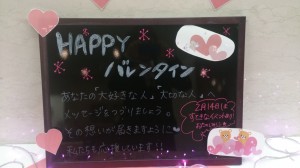 HAPPY
バレンタイン
あなたの大好きな人、大切な人へ
メッセージをつづりましょう
その想いが届きますように
私たちも応援しています!!
2月14日は